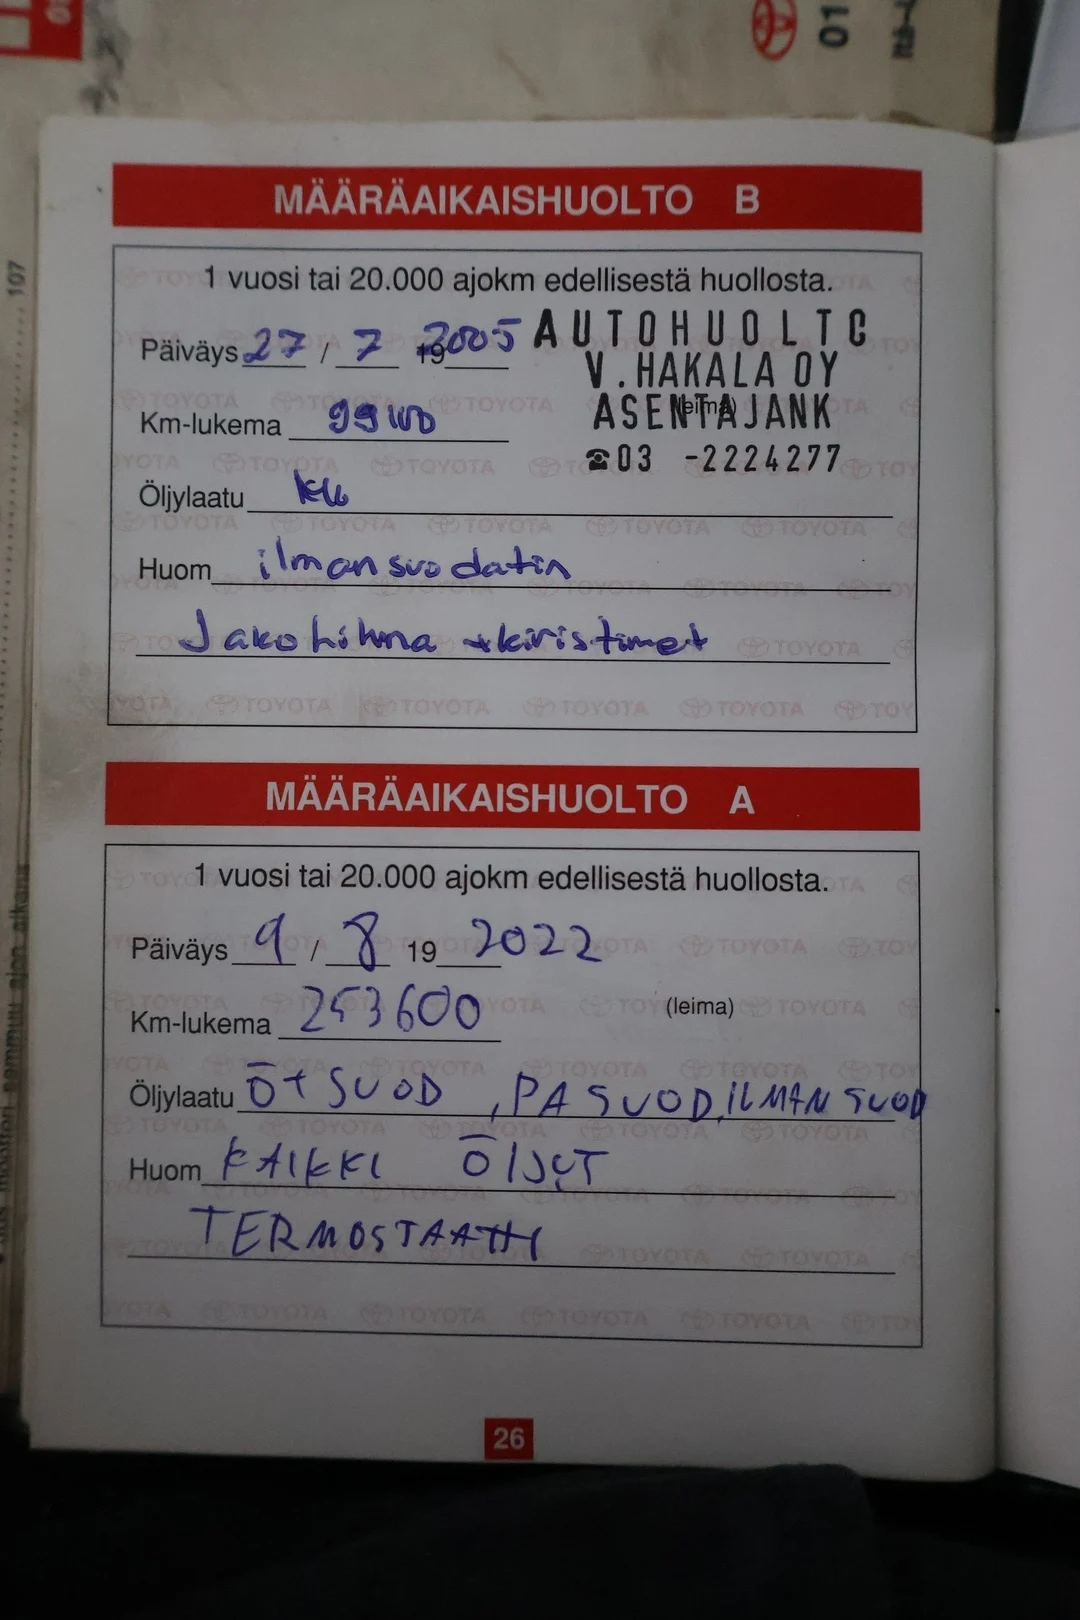 01
107
MÄÄRÄAIKAISHUOLTO B
1 vuosi tai 20.000 ajokm edellisestä huollosta.
Päiväys 27 / 7 19 2005
AUTOHUOLTO
V.HAKALA OY
(leima)
ASENTAJANK
☎03 -2224277
Km-lukema
Öljylaatu
Huom ilman suodatin
Jakohihna + kiristimet
MÄÄRÄAIKAISHUOLTO A
1 vuosi tai 20.000 ajokm edellisestä huollosta.
Päiväys 9 / 8 19 2022
Km-lukema 253600
(leima)
Öljylaatu Ö+SUOD, PA SUOD, ILMAN SUOD
Huom KAIKKI ÖLJYT
TERMOSTAATTI
26
TOYOTA